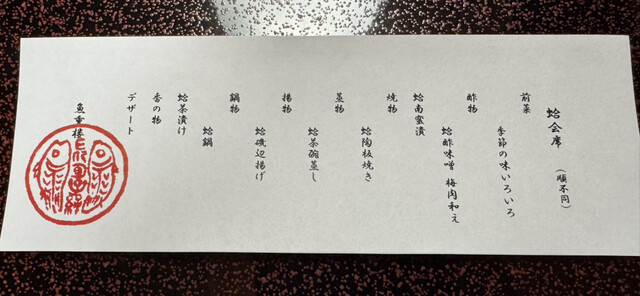 蛤会席　(順不同)
前菜
季節の味いろいろ
酢物
蛤酢味噌 梅肉和え
蛤南蛮漬
焼物
蛤陶板焼き
蒸物
蛤茶碗蒸し
揚物
蛤磯辺揚げ
鍋物
蛤鍋
蛤茶漬け
香の物
デザート
魚重楼